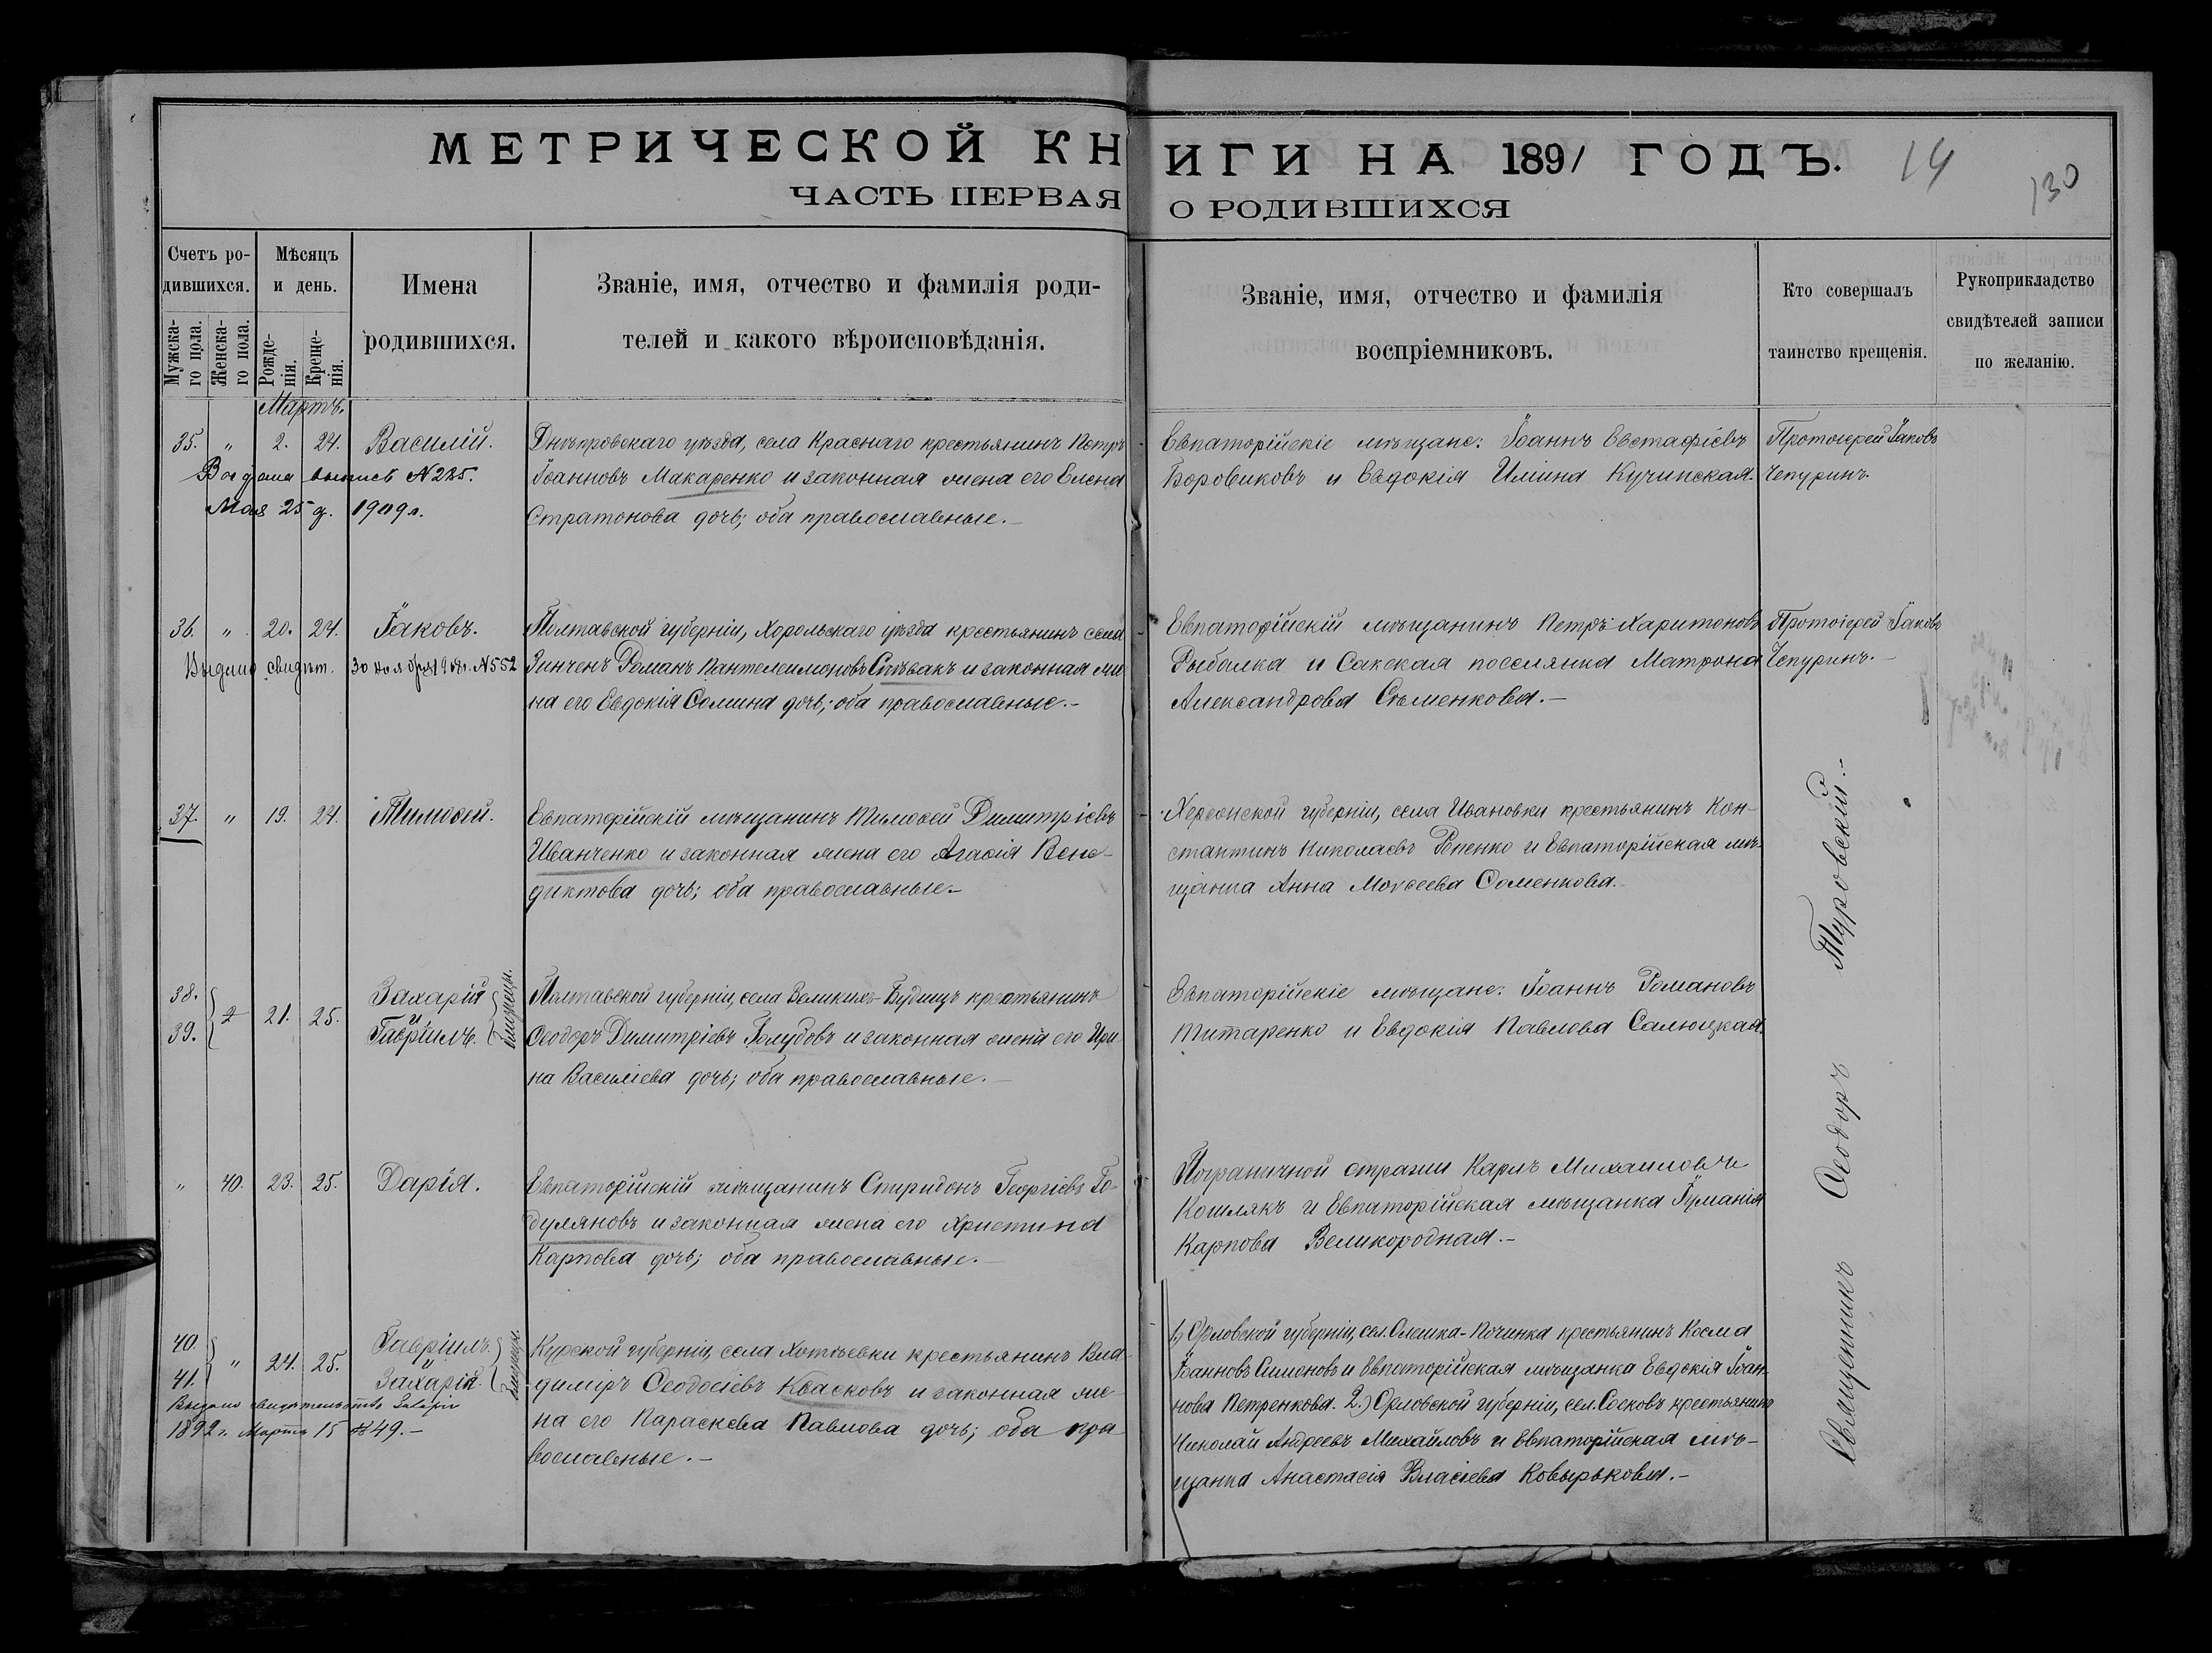 МЕТРИЧЕСКОЙ КНИГИ НА 1891 ГОДЪ.
14
130
ЧАСТЬ ПЕРВАЯ О РОДИВШИХСЯ
Счетъ ро-
дившихся.
Мужска-
го пола.
Женска-
го пола.
Мѣсяцъ
и день.
Рожде-
нія.
Креще-
нія.
Имена
родившихся.
Званіе, имя, отчество и фамилія роди-
телей и какого вѣроисповѣданія.
Званіе, имя, отчество и фамилія
воспріемниковъ.
Кто совершалъ
таинство крещенія.
Рукоприкладство
свидѣтелей записи
по желанію.
Мартъ.
35. " 2. 24. Василій.
Выдана выпись N 225.
Мая 25 д. 1909 г.
Днѣпровскаго уѣзда, села Краснаго крестьянинъ Петръ
Іоанновъ Макаренко и законная жена его Елена
Стратонова дочь; оба православные.–
Евпаторійскіе мѣщане: Іоаннъ Евстафіевъ
Боровиковъ и Евдокія Ильина Кучинская.
Протоіерей Іаковъ
Чепуринъ.
36. " 20. 24. Іаковъ.
Выдано свидѣт. 30 ноября 1908г. N 552
Полтавской губерніи, Хорольскаго уѣзда крестьянинъ села
Зинченъ Романъ Пантелеимоновъ Спѣвакъ и законная же
на его Евдокія Сомина дочь; оба православные.–
Евпаторійскій мѣщанинъ Петръ Харитоновъ
Рыбалка и Сакская поселянка Матрона
Александрова Сѣменкова.–
Протоіерей Іаковъ
Чепуринъ.–
37. " 19. 24. Тимоѳей.
Евпаторійскій мѣщанинъ Тимоѳей Димитріевъ
Иванченко и законная жена его Агаѳія Вене-
диктова дочь; оба православные.–
Херсонской губерніи, села Ивановки крестьянинъ Кон-
стантинъ Николаевъ Репенко и Евпаторійская мѣ-
щанка Анна Моисеева Соменкова.
38.
39.
2 21. 25.
Захарія
и
Гавріилъ.
близнецы.
Полтавской губерніи, села Великихъ-Будищъ крестьянинъ
Ѳеодоръ Димитріевъ Голубовъ и законная жена его Ири
на Василіева дочь; оба православные.–
Евпаторійскіе мѣщане: Іоаннъ Романовъ
Титаренко и Евдокія Павлова Салюцкая.
" 40. 23. 25. Дарія.
Евпаторійскій мѣщанинъ Спиридонъ Георгіевъ Го-
дуляновъ и законная жена его Христина
Карпова дочь; оба православные.–
Пограничной стражи Карлъ Михаиловъ
Кошлякъ и Евпаторійская мѣщанка Іуліанія
Карпова Великородная.–
40.
41.
" 24. 25.
Гавріилъ.
Захарія.
близнецы.
Выдано свидѣтельство
1892 г. Марта 15 № 49.–
Курской губерніи, села Хотѣевки крестьянинъ Вла
диміръ Ѳеодосіевъ Квасковъ и законная же-
на его Параскева Павлова дочь; оба пра
вославные.–
1.) Орловской губерніи, сел. Олешка-Починка крестьянинъ Косма
Іоанновъ Симоновъ и Евпаторійская мѣщанка Евдокія Іоан-
нова Петренкова. 2.) Орловской губерніи, сел. Сосковъ крестьянинъ
Николай Андреевъ Михайловъ и Евпаторійская мѣ-
щанка Анастасія Власіева Ковырькова.–
Священникъ Ѳеодоръ Туровскій.–